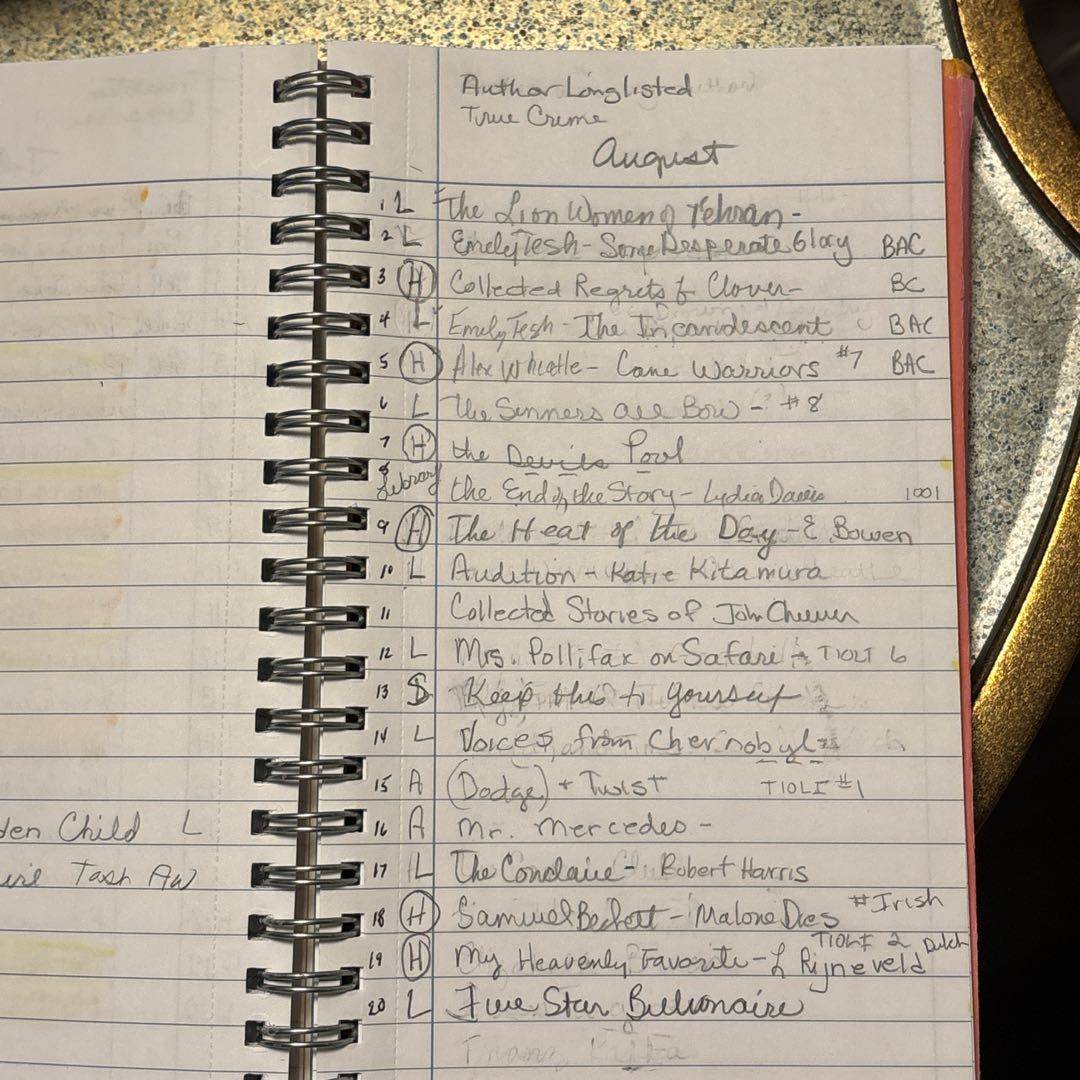 Author Longlisted
True Crime
August
1 L The Lion Women of Tehran -
2 L Emily Tesh - Some Desperate Glory BAC
3 H Collected Regrets of Clover - BC
4 L Emily Tesh - The Incandescent BAC
5 H Alex Wheatle - Cane Warriors #7 BAC
6 L The Sinners all Bow - #8
7 H the Devils Pool
8 Library the End of the Story - Lydia Davis 1001
9 H The Heat of the Day - E. Bowen
10 L Audition - Katie Kitamura
11 Collected Stories of John Cheever
12 L Mrs. Pollifax on Safari - TIOLI 6
13 S Keep this to yourself
14 L Voices from Chernobyl
15 A (Dodge) + Twist TIOLI #1
den Child L 16 A Mr. Mercedes -
Tash Aw 17 L The Conclave - Robert Harris
18 H Samuel Beckett - Malone Dies #Irish
TIOLI 2 Dutch
19 H My Heavenly Favorite - L Rijneveld
20 L Five Star Billionaire